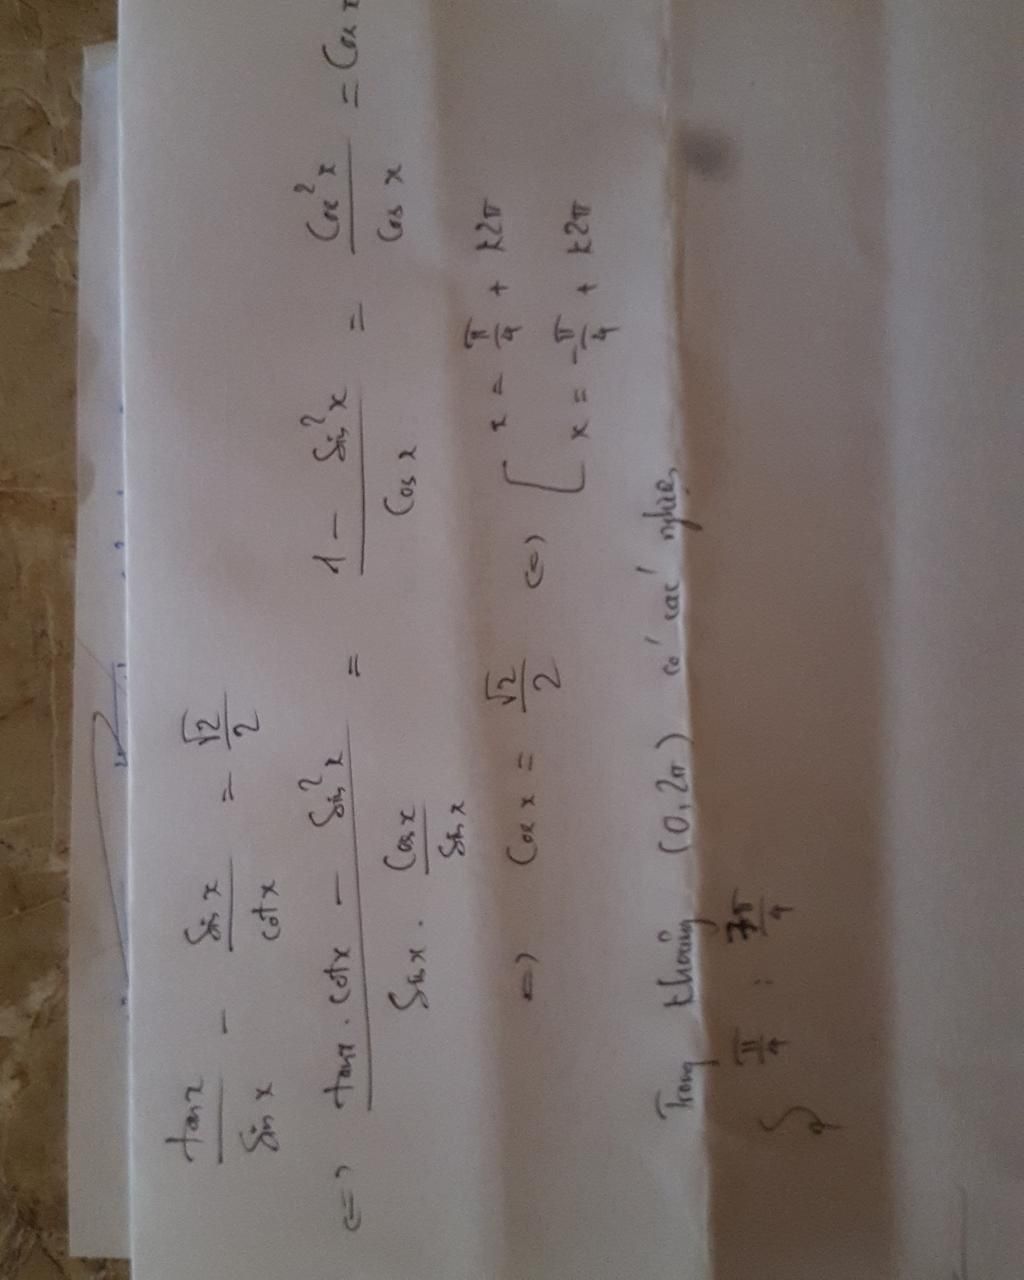 tanx/Sinx - Sinx/cotx = √2/2
<=> (tanx . cotx - Sin²x)/(Sinx . Cosx/Sinx) = (1 - Sin²x)/Cosx = Cos²x/Cosx = Cosx
=> Cosx = √2/2 <=> [ x = π/4 + k2π
x = -π/4 + k2π
Trong khoảng (0, 2π) có các nghiệm
π/4 ; 7π/4